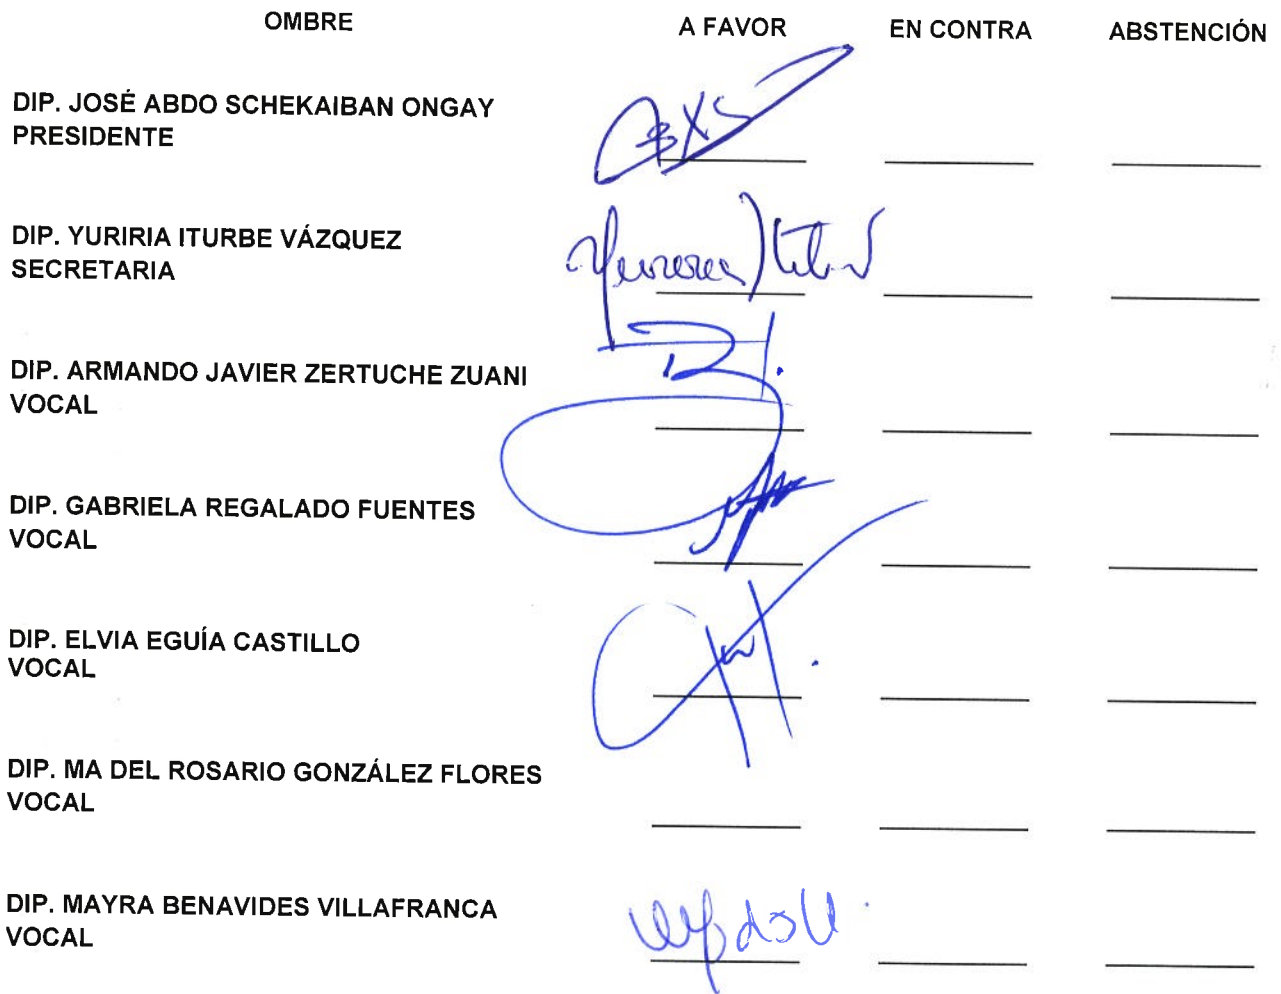 OMBRE A FAVOR EN CONTRA ABSTENCIÓN
DIP. JOSÉ ABDO SCHEKAIBAN ONGAY
PRESIDENTE
DIP. YURIRIA ITURBE VÁZQUEZ
SECRETARIA
DIP. ARMANDO JAVIER ZERTUCHE ZUANI
VOCAL
DIP. GABRIELA REGALADO FUENTES
VOCAL
DIP. ELVIA EGUÍA CASTILLO
VOCAL
DIP. MA DEL ROSARIO GONZÁLEZ FLORES
VOCAL
DIP. MAYRA BENAVIDES VILLAFRANCA
VOCAL